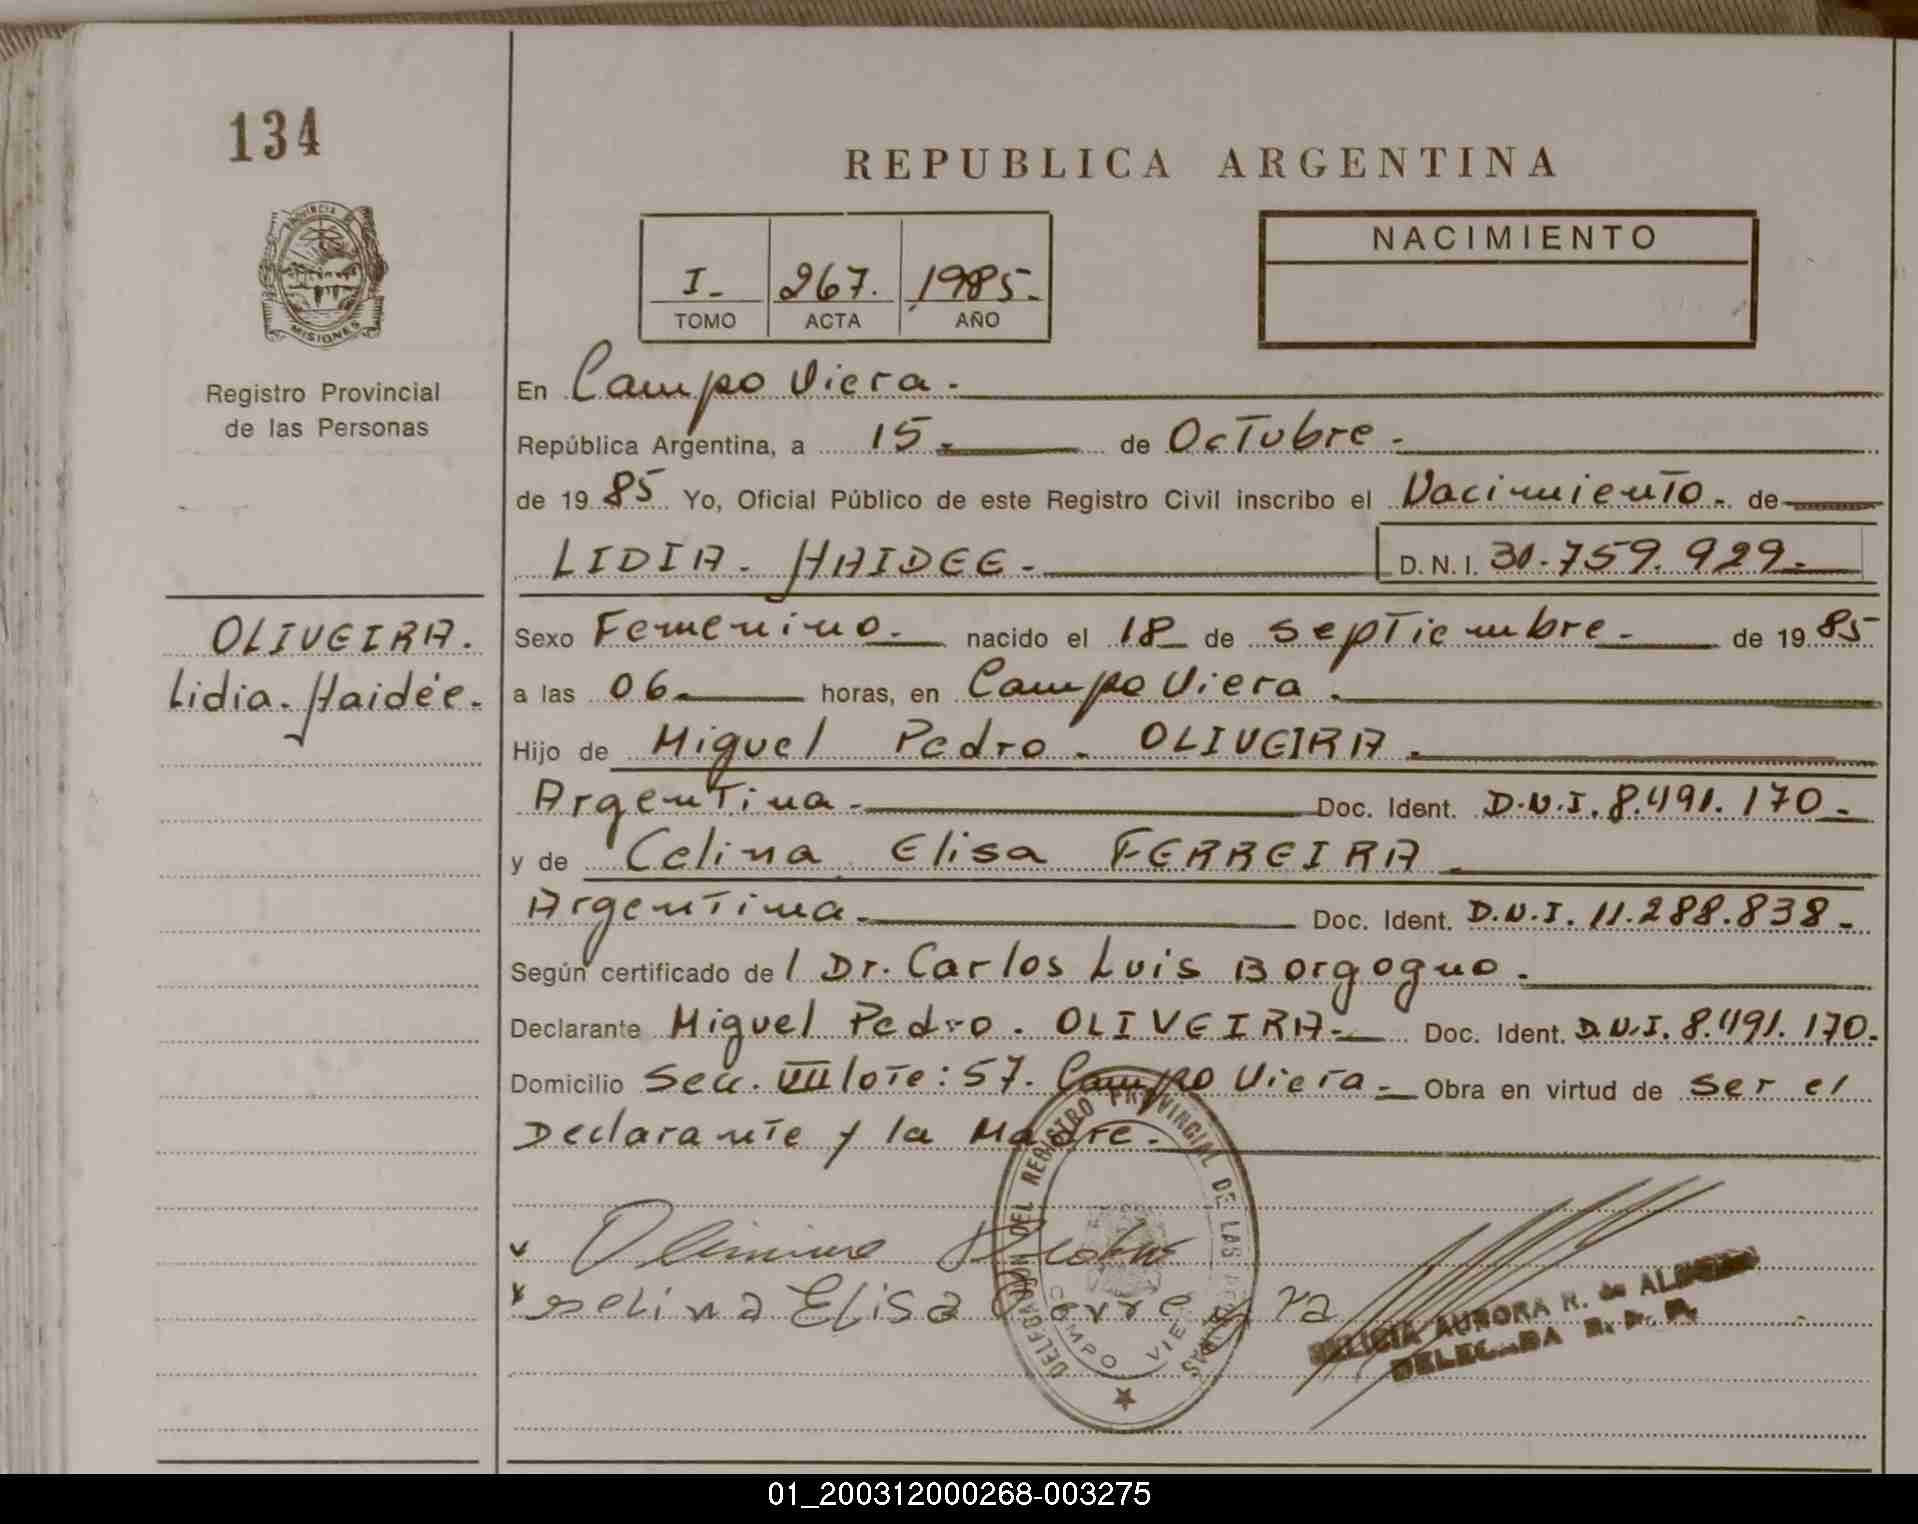 134
REPUBLICA ARGENTINA
PROVINCIA DE
MISIONES
Registro Provincial
de las Personas
I- 267. 1985-
TOMO ACTA AÑO
NACIMIENTO
En Campo Viera.
República Argentina, a 15- de Octubre-
de 1985 Yo, Oficial Público de este Registro Civil inscribo el Nacimiento- de
LIDIA- HAIDEE- D. N. I. 30.759.929-
OLIVEIRA.
Lidia-Haidée-
Sexo Femenino- nacido el 18 de septiembre- de 1985
a las 06- horas, en Campo Viera.
Hijo de Miguel Pedro- OLIVEIRA.
Argentina- Doc. Ident. D.N.I. 8.491.170-
y de Celina Elisa FERREIRA
Argentina- Doc. Ident. D.N.I. 11.288.838-
Según certificado del Dr. Carlos Luis Borgogno.
Declarante Miguel Pedro. OLIVEIRA- Doc. Ident. D.N.I. 8.491.170-
Domicilio Secc. VIII lote: 57. Campo Viera- Obra en virtud de ser el
Declarante y la Madre-
DELEGACION DEL REGISTRO PROVINCIAL DE LAS PERSONAS
CAMPO VIERA
Elisa
AURORA R. de
DELEGADA R. P. P.
01_200312000268-003275